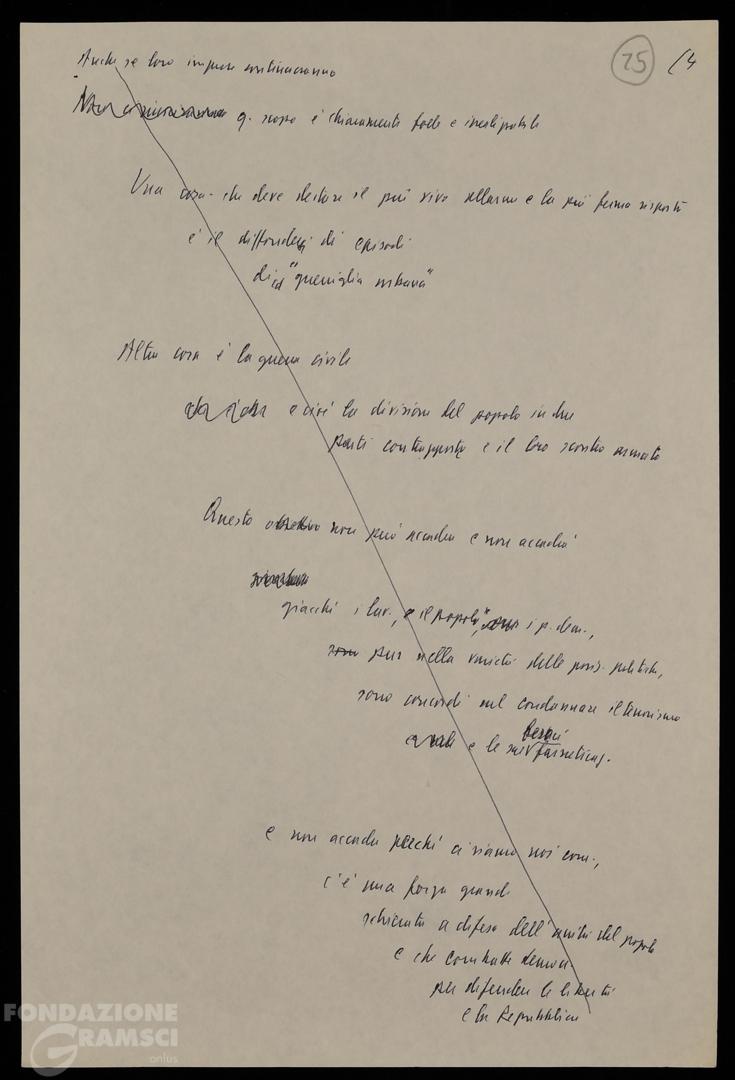 25 /4
Anche se loro imprese continueranno
q. scopo è chiaramente folle e
Una cosa che deve destare il più vivo allarme e la più ferma risposta
è il diffondersi di episodi
di cd "guerriglia urbana"
Altra cosa è la guerra civile
e cioè la divisione del popolo in due
parti contrapposte e il loro scontro armato
Questo non può accadere e non accadrà
giacché i lav., e il popolo, i p. dem.,
pur nella varietà delle pos. politiche,
sono concordi nel condannare il terrorismo
e le sue
e non accadrà perché ci siamo noi com.,
c'è una forza grande
schierata a difesa dell'unità del popolo
e che combatte democr.
per difendere le libertà
e la Repubblica
FONDAZIONE
GRAMSCI
onlus